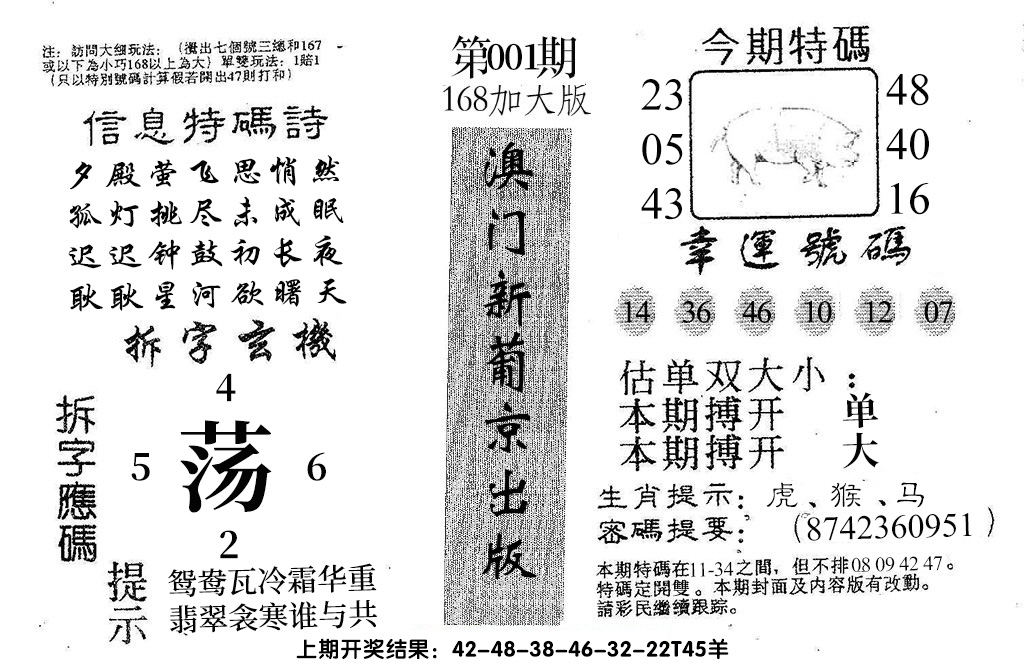 注：訪問大细玩法：（攪出七個號三總和167
或以下為小巧168以上為大）單雙玩法：1賠1
（只以特別號碼計算假若開出47則打和）
信息特碼詩
夕殿萤飞思悄然
孤灯挑尽未成眠
迟迟钟鼓初长夜
耿耿星河欲曙天
拆字玄機
拆字應碼
4
5 荡 6
2
提示
鸳鸯瓦冷霜华重
翡翠衾寒谁与共
第001期
168加大版
澳门新葡京出版
今期特碼
23 48
05 40
43 16
幸運號碼
14 36 46 10 12 07
估单双大小：
本期搏开 单
本期搏开 大
生肖提示：虎、猴、马
密碼提要：（8742360951）
本期特碼在11-34之間，但不排08 09 42 47。
特碼定開雙。本期封面及内容版有改動。
請彩民繼續跟踪。
上期开奖结果：42-48-38-46-32-22T45羊